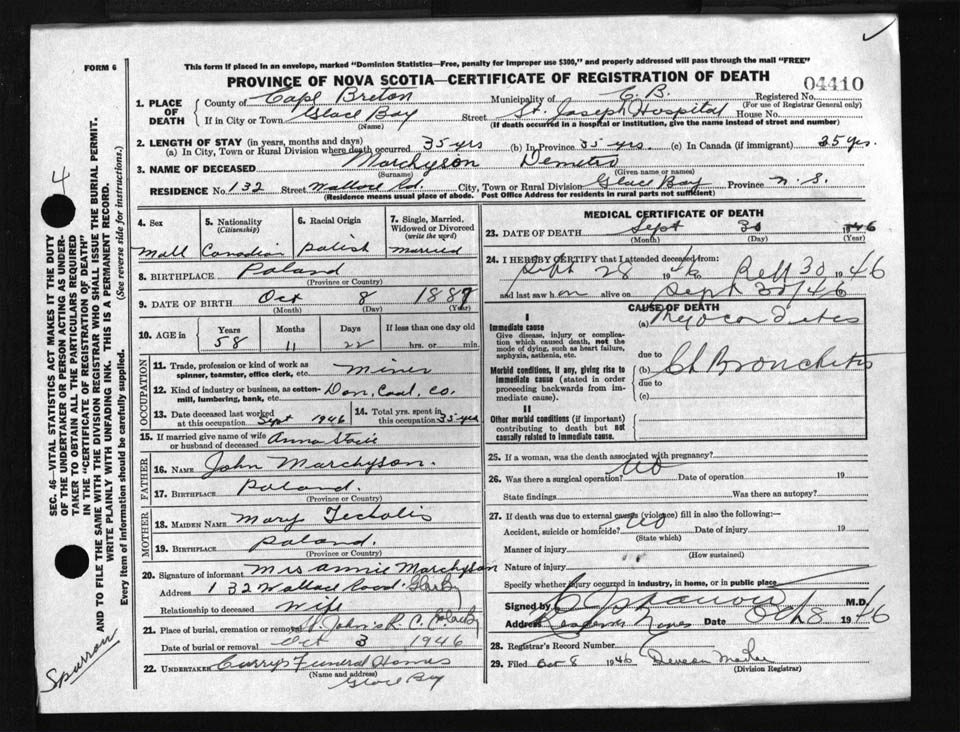 This form if placed in an envelope, marked "Dominion Statistics—Free, penalty for improper use $300," and properly addressed will pass through the mail "FREE"
FORM 6
PROVINCE OF NOVA SCOTIA—CERTIFICATE OF REGISTRATION OF DEATH
04410
1. PLACE OF DEATH
County of Cape Breton Municipality of C. B. Registered No.
(For use of Registrar General only)
If in City or Town Glace Bay Street St. Joseph Hospital House No.
(Name) (If death occurred in a hospital or institution, give the name instead of street and number)
2. LENGTH OF STAY (in years, months and days)
(a) In City, Town or Rural Division where death occurred 35 yrs (b) In Province 35 yrs. (c) In Canada (if immigrant) 35 yrs.
3. NAME OF DECEASED Marchyson Demetro
(Surname) (Given name or names)
RESIDENCE No. 132 Street Wallace Rd. City, Town or Rural Division Glace Bay Province N. S.
(Residence means usual place of abode. Post Office Address for residents in rural parts not sufficient)
4. Sex 5. Nationality (Citizenship) 6. Racial Origin 7. Single, Married, Widowed or Divorced (write the word)
Mall Canadian Polish Married
8. BIRTHPLACE Poland
(Province or County)
9. DATE OF BIRTH Oct 8 1887
(Month) (Day) (Year)
10. AGE in Years Months Days If less than one day old
58 11 22 hrs. or min.
OCCUPATION
11. Trade, profession or kind of work as spinner, teamster, office clerk, etc. Miner
12. Kind of industry or business, as cotton-mill, lumbering, bank, etc. Dom. Coal, Co.
13. Date deceased last worked at this occupation Sept 1946 14. Total yrs. spent in this occupation 35 yrs
15. If married give name of wife or husband of deceased Anna
FATHER
16. NAME John Marchyson.
17. BIRTHPLACE Poland.
(Province or Country)
MOTHER
18. MAIDEN NAME Mary
19. BIRTHPLACE Poland.
(Province or Country)
20. Signature of informant Mrs Annie Marchyson
Address 132 Wallace Road.
Relationship to deceased Wife
21. Place of burial, cremation or removal St. John's R. C.
Date of burial or removal Oct 3 1946
22. UNDERTAKER Curry's Funeral Homes
(Name and address)
Glace Bay
MEDICAL CERTIFICATE OF DEATH
23. DATE OF DEATH Sept 30 1946
(Month) (Day) (Year)
24. I HEREBY CERTIFY that I attended deceased from:
Sept 28 1946 to Sept 30 1946
and last saw h on alive on Sept 30/46
CAUSE OF DEATH
I
Immediate cause
Give disease, injury or complication which caused death, not the mode of dying, such as heart failure, asphyxia, asthenia, etc.
(a) Myocarditis
due to
Morbid conditions, if any, giving rise to immediate cause (stated in order proceeding backwards from immediate cause).
(b) Ch Bronchitis
due to
(c)
II
Other morbid conditions (if important) contributing to death but not causally related to immediate cause.
25. If a woman, was the death associated with pregnancy?
26. Was there a surgical operation? No Date of operation 19
State findings Was there an autopsy?
27. If death was due to external causes (violence) fill in also the following:—
Accident, suicide or homicide? No Date of injury 19
(State which)
Manner of injury (How sustained)
Nature of injury
Specify whether injury occurred in industry, in home, or in public place
Signed by M.D.
Address Date Oct 8 1946
28. Registrar's Record Number
29. Filed Oct 8 1946
(Division Registrar)
SEC. 46—VITAL STATISTICS ACT MAKES IT THE DUTY
OF THE UNDERTAKER OR PERSON ACTING AS UNDER-
TAKER TO OBTAIN ALL THE PARTICULARS REQUIRED
IN THE "CERTIFICATE OF REGISTRATION OF DEATH"
AND TO FILE THE SAME WITH THE DIVISION REGISTRAR WHO SHALL ISSUE THE BURIAL PERMIT.
WRITE PLAINLY WITH UNFADING INK. THIS IS A PERMANENT RECORD.
Every item of information should be carefully supplied. (See reverse side for instructions.)
4
Spurrow